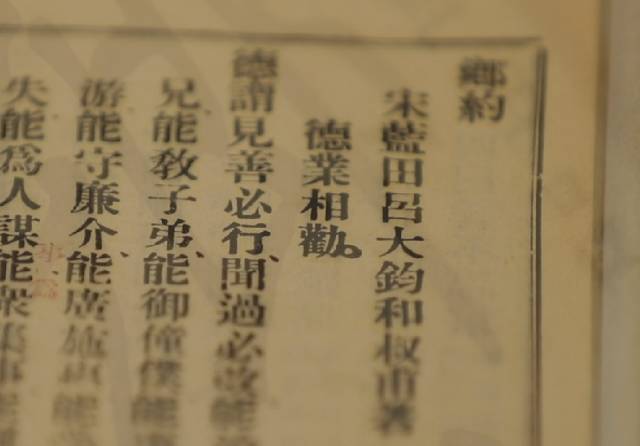 鄉約
宋藍田呂大鈞和叔甫著
德業相勸。
德謂見善必行、聞過必改、能
兄、能教子弟、能御僮僕、能
游、能守廉介、能廣施惠、能
失、能為人謀、能衆集事